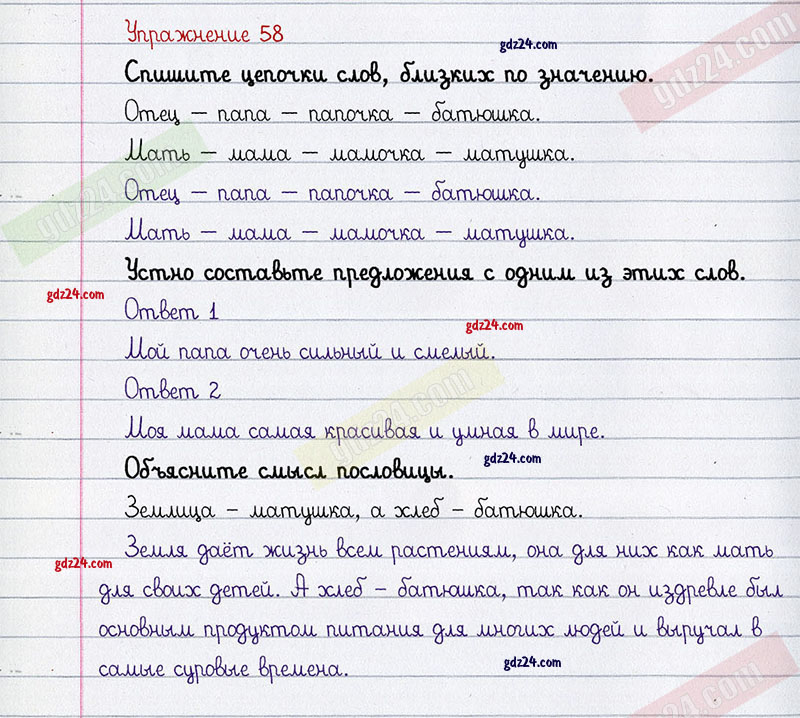 Упражнение 58
gdz24.com
Спишите цепочки слов, близких по значению.
gdz24.com
Отец – папа – папочка – батюшка.
Мать – мама – мамочка – матушка.
gdz24.com
Отец – папа – папочка – батюшка.
Мать – мама – мамочка – матушка.
Устно составьте предложения с одним из этих слов.
gdz24.com
Ответ 1
gdz24.com
Мой папа очень сильный и смелый.
Ответ 2
gdz24.com
Моя мама самая красивая и умная в мире.
Объясните смысл пословицы.
gdz24.com
Землица – матушка, а хлеб – батюшка.
Земля даёт жизнь всем растениям, она для них как мать
gdz24.com
для своих детей. А хлеб – батюшка, так как он издревле был
основным продуктом питания для многих людей и выручал в
самые суровые времена.
gdz24.com
gdz24.com